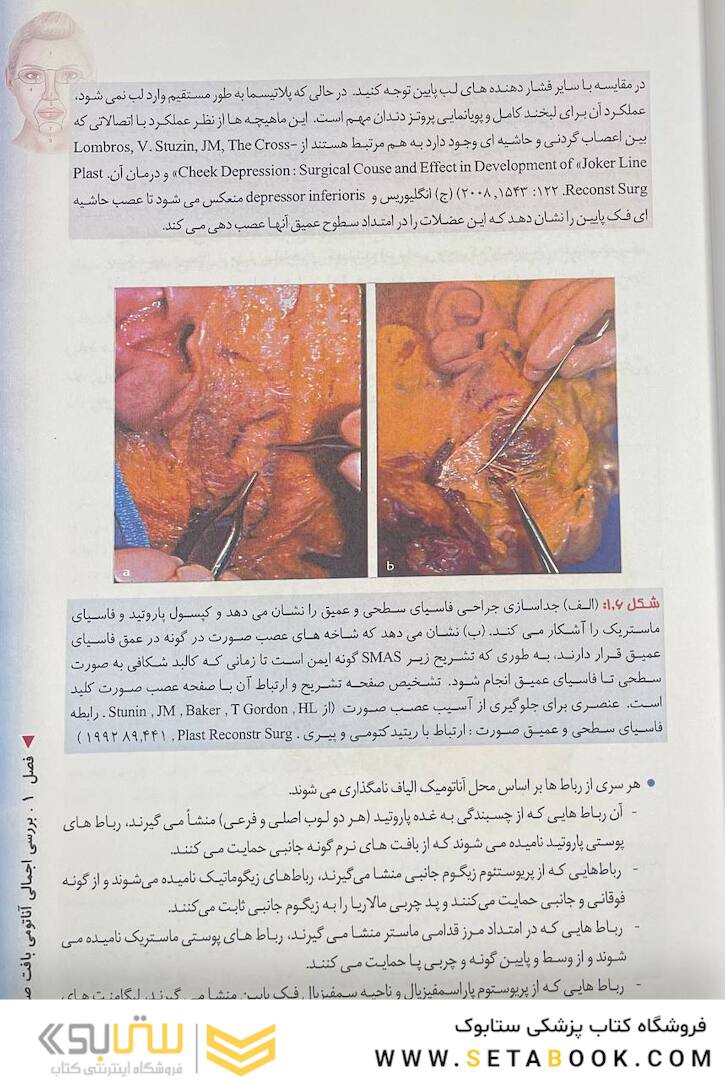 در مقایسه با سایر فشار دهنده های لب پایین توجه کنید. در حالی که پلاتیسما به طور مستقیم وارد لب نمی شود،
عملکرد آن برای لبخند کامل و پویانمایی پروتز دندان مهم است. این ماهیچه ها از نظر عملکرد با اتصالاتی که
بین اعصاب گردنی و حاشیه ای وجود دارد به هم مرتبط هستند از Lombros, V. Stuzin, JM, The Cross-
Cheek Depression: Surgical Couse and Effect in Development of «Joker Line» و درمان آن. Plast
Reconst Surg. ۱۲۲: ۱۵۴۳, ۲۰۰۸) (ج) انگلیوریس و depressor inferioris منعکس می شود تا عصب حاشیه
ای فک پایین را نشان دهد که این عضلات را در امتداد سطوح عمیق آنها عصب دهی می کند.
a
b
شکل ۱.۶: (الف) جداسازی جراحی فاسیای سطحی و عمیق را نشان می دهد و کپسول پاروتید و فاسیای
ماستریک را آشکار می کند. (ب) نشان می دهد که شاخه های عصب صورت در گونه در عمق فاسیای
عمیق قرار دارند، به طوری که تشریح زیر SMAS گونه ایمن است تا زمانی که کالبد شکافی به صورت
سطحی تا فاسیای عمیق انجام شود. تشخیص صفحه تشریح و ارتباط آن با صفحه عصب صورت کلید
است. عنصری برای جلوگیری از آسیب عصب صورت (از Stunin , JM , Baker , T Gordon , HL. رابطه
فاسیای سطحی و عمیق صورت : ارتباط با ریتیدکتومی و پیری . Plast Reconstr Surg , ۸۹,۴۴۱ ۱۹۹۲ )
• هر سری از رباط ها بر اساس محل آناتومیک الیاف نامگذاری می شوند.
- آن رباط هایی که از چسبندگی به غده پاروتید (هر دو لوب اصلی و فرعی) منشأ می گیرند، رباط های
پوستی پاروتید نامیده می شوند که از بافت های نرم گونه جانبی حمایت می کنند.
- رباط‌هایی که از پریوستئوم زیگوم جانبی منشا می‌گیرند، رباط‌های زیگوماتیک نامیده می‌شوند و از گونه
فوقانی و جانبی حمایت می‌کنند و پد چربی مالاریا را به زیگوم جانبی ثابت می‌کنند.
- رباط هایی که در امتداد مرز قدامی ماستر منشا می گیرند، رباط های پوستی ماستریک نامیده می
شوند و از وسط و پایین گونه و چربی پا حمایت می کنند.
- رباط هایی که از پریوستوم پاراسمفیزیال و ناحیه سمفیزیال فک پایین منشا می گیرند، لیگامنت های
فصل ۱ . بررسی اجمالی آناتومی بافت
فروشگاه کتاب پزشکی ستابوک
WWW.SETABOOK.COM
ستابوک
فروشگاه اینترنتی کتاب